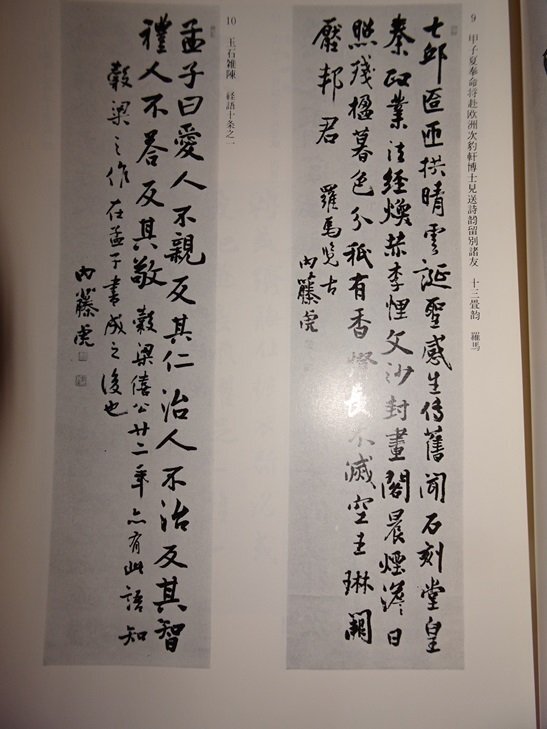 9 甲子夏奉命将赴欧洲次豹軒博士見送詩韵留別諸友 十三畳韵 羅馬
七邱匼匝拱晴雲誕聖感生傳舊聞石刻堂皇
秦政業法經煥李悝文沙封畫閣晨煙澹日
照殘楹暮色分祇有香燈長不滅空王琳闕
壓邦君 羅馬覧古
内藤虎
10 玉石雑陳 経語十条之一
孟子曰愛人不親反其仁治人不治反其智
禮人不答反其敬 穀梁僖公廿二年亦有此語知
穀梁之作在孟子書成之後也
内藤虎